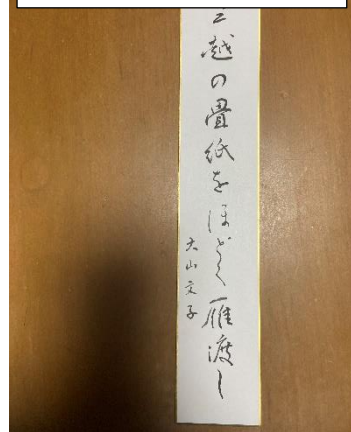 三越の畳紙をほどく雁渡し
大山文子